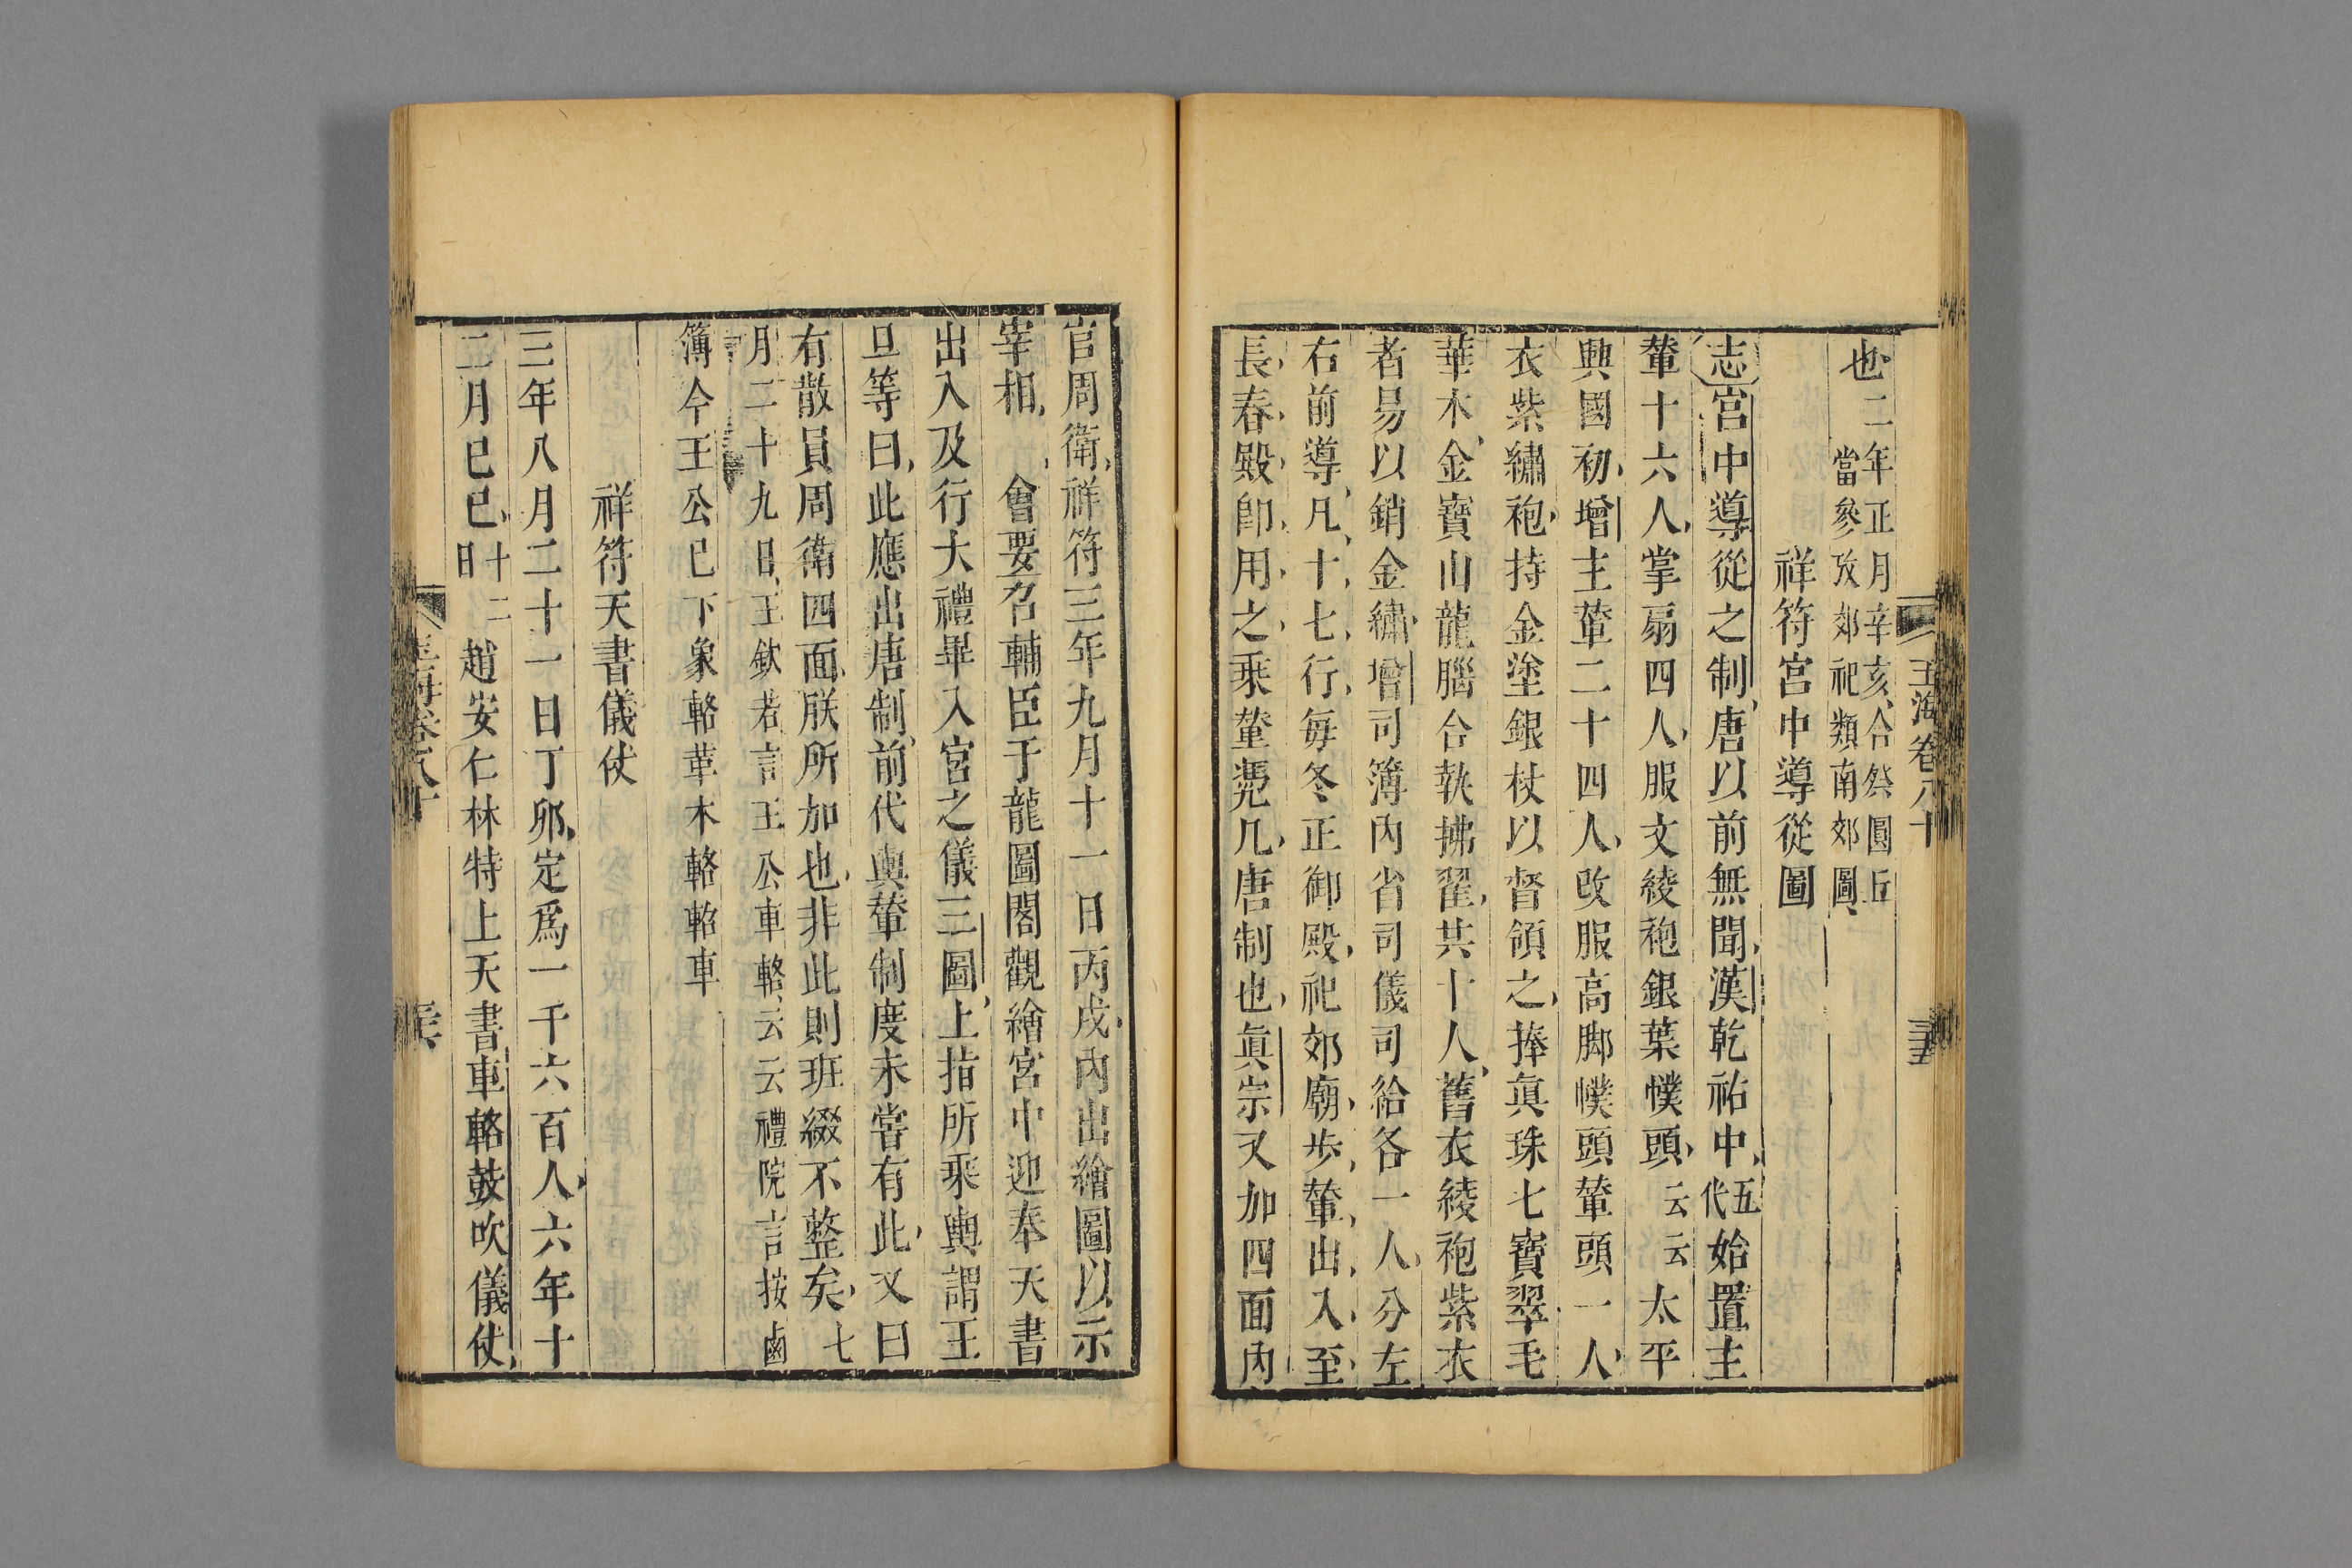 玉海卷八十
也二年正月辛亥合祭圓丘
當參攷郊祀類南郊圖
祥符宮中導從圖
志宮中導從之制唐以前無聞漢乾祐中五代始置主
輦十六人掌扇四人服文綾袍銀葉幞頭云云太平
興國初增主輦二十四人改服高脚幞頭輦頭一人
衣紫繡袍持金塗銀杖以督領之捧眞珠七寶翠毛
華木金寶山龍腦合執拂翟共十人舊衣綾袍紫衣
者易以銷金繡增司簿內省司儀司給各一人分左
右前導凡十七行每冬正御殿祀郊廟步輦出入至
長春殿卽用之乘輦凴几唐制也眞宗又加四面內
官周衛祥符三年九月十一日丙戌內出繪圖以示
宰相 會要召輔臣于龍圖閣觀繪宮中迎奉天書
出入及行大禮畢入宮之儀三圖上指所乘輿謂王
旦等曰此應出唐制前代輿輦制度未嘗有此又曰
有散員周衛四面朕所加也非此則班綴不整矣七
月二十九日王欽若言王公車輅云云禮院言按鹵
簿令王公已下象輅革木輅軺車
祥符天書儀仗
三年八月二十一日丁卯定爲一千六百人六年十
二月巳巳十二日趙安仁林特上天書車輅鼓吹儀仗